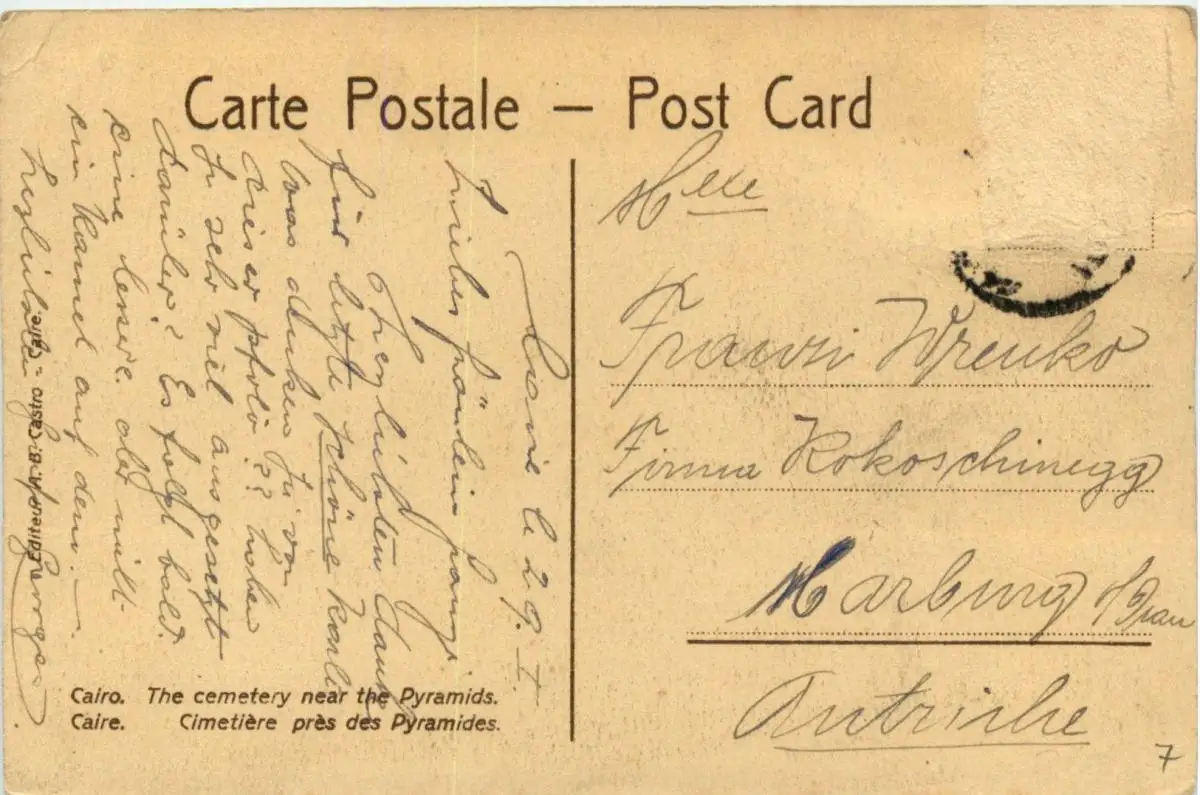 Carte Postale — Post Card
Caire le 29. I.
Liebes fräulein franzi.
Herzlichsten Dank
für letzte schöne Karte
Was denken Sie von
dieser photo?? haben
Sie sehr viel ausgesetzt
darüber? Es folgt bald
eine bessere. aber mitt-
ein Kamel auf dem. —
herzlichst
Georges
Editeur A.B. Castro - Caire.
Cairo. The cemetery near the Pyramids.
Caire. Cimetière près des Pyramides.
Mlle
Franzi Wrenko
Firma Kokoschinegg
Marburg a/Drau
Autriche
7